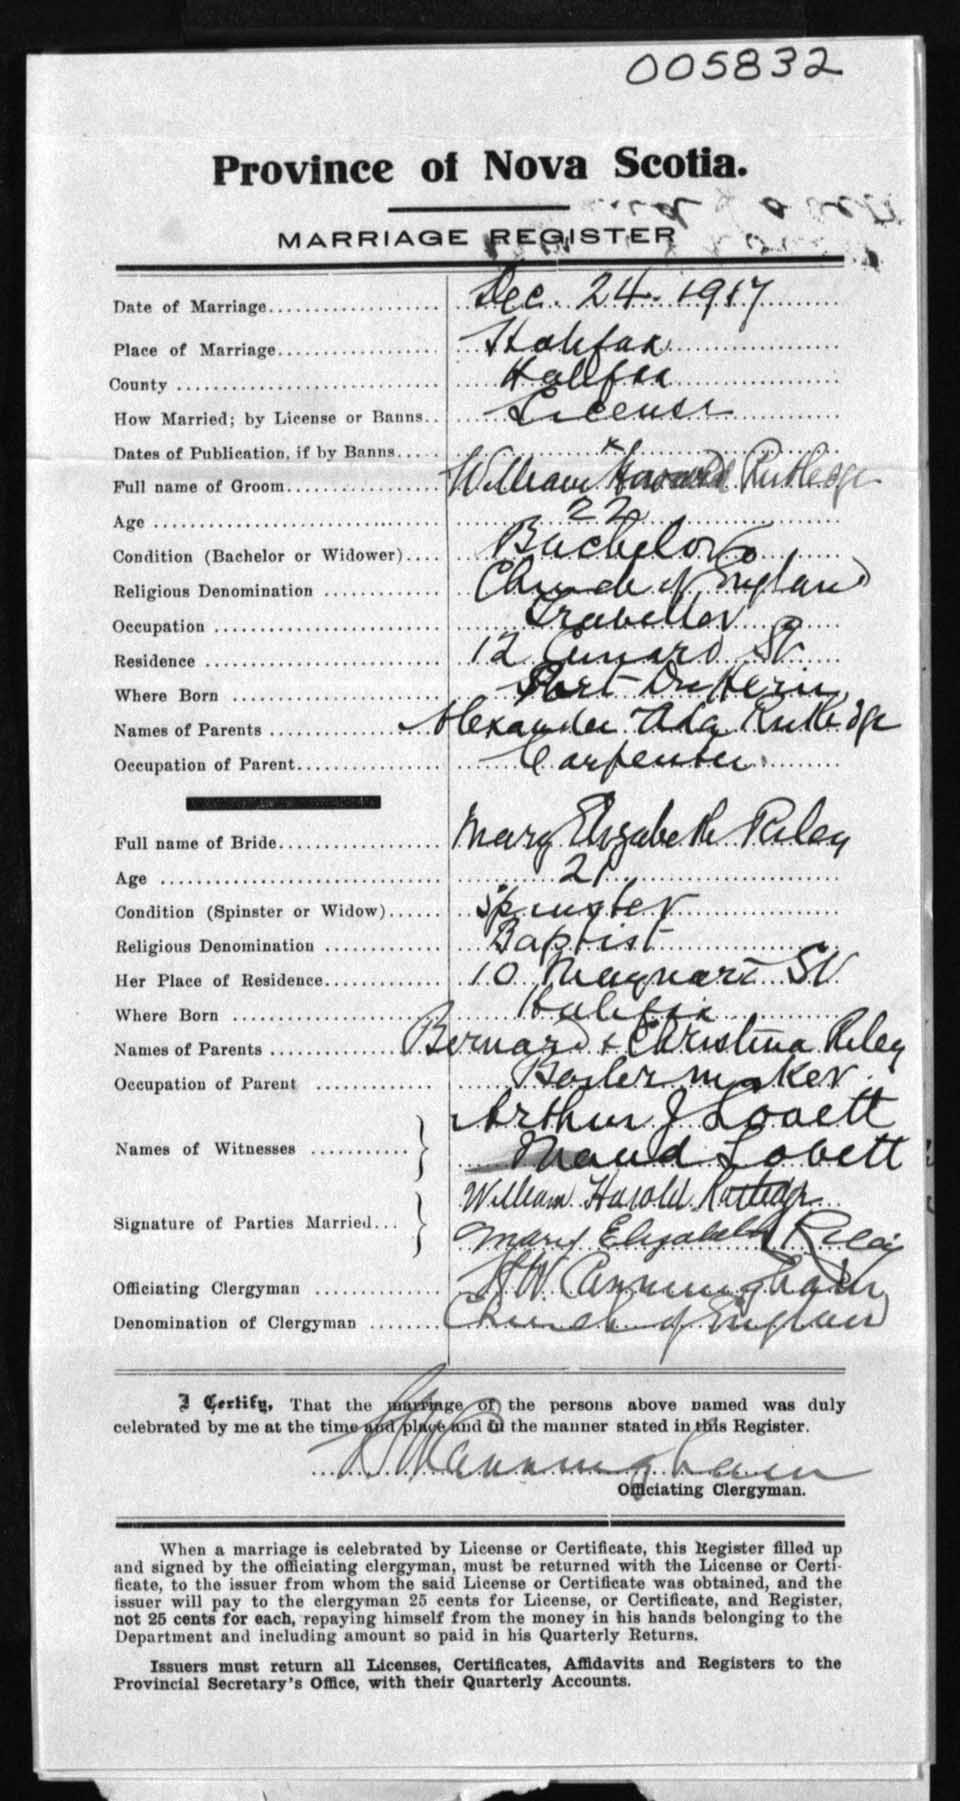 005832
Province of Nova Scotia.
MARRIAGE REGISTER
Date of Marriage Dec. 24. 1917
Place of Marriage Halifax
County Halifax
How Married; by License or Banns License
Dates of Publication, if by Banns
Full name of Groom William Harold Rutledge
Age 22
Condition (Bachelor or Widower) Bachelor
Religious Denomination Church of England
Occupation Traveller
Residence 12 Cunard St
Where Born Port
Names of Parents Alexander Ada Rutledge
Occupation of Parent Carpenter
Full name of Bride Mary Elizabeth Riley
Age 21
Condition (Spinster or Widow) Spinster
Religious Denomination Baptist
Her Place of Residence 10 Maynard St
Where Born Halifax
Names of Parents Bernard + Christina Riley
Occupation of Parent Boilermaker
Arthur J. Lovett
Names of Witnesses
Maud Lovett
William Harold Rutledge
Signature of Parties Married
Mary Elizabeth Riley
Officiating Clergyman H W Cunningham
Denomination of Clergyman Church of England
I Certify, That the marriage of the persons above named was duly
celebrated by me at the time and place and in the manner stated in this Register.
H W Cunningham
Officiating Clergyman.
When a marriage is celebrated by License or Certificate, this Register filled up
and signed by the officiating clergyman, must be returned with the License or Certi-
ficate, to the issuer from whom the said License or Certificate was obtained, and the
issuer will pay to the clergyman 25 cents for License, or Certificate, and Register,
not 25 cents for each, repaying himself from the money in his hands belonging to the
Department and including amount so paid in his Quarterly Returns.
Issuers must return all Licenses, Certificates, Affidavits and Registers to the
Provincial Secretary's Office, with their Quarterly Accounts.